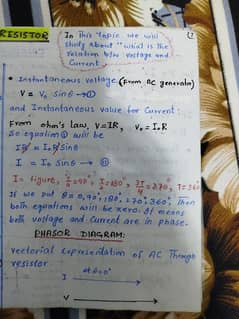 RESISTOR
In This topic we will
study about "what is the
relation b/w voltage and
Current.
• Instantaneous voltage (From AC generator)
V = V₀ Sinθ → ①
and Instantaneous value for Current:
From ohm's law, V=IR, V₀ = I₀R
So equation ① will be
IR = I₀R Sinθ
I = I₀ Sinθ → ②
If we put θ=0, 90°, 180°, 270°, 360°, Then
both equations will be zero. It means
both voltage and Current are in phase.
PHASOR DIAGRAM:
Vectorial representation of AC Through
resistor
at θ=0°
I
V